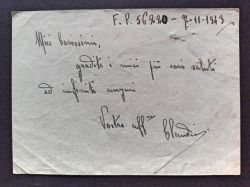 F. P. 56220 - 7-11-1943
Miei carissimi,
gradite i miei più cari saluti
ed infiniti auguri
Vostro aff.mo Claudio